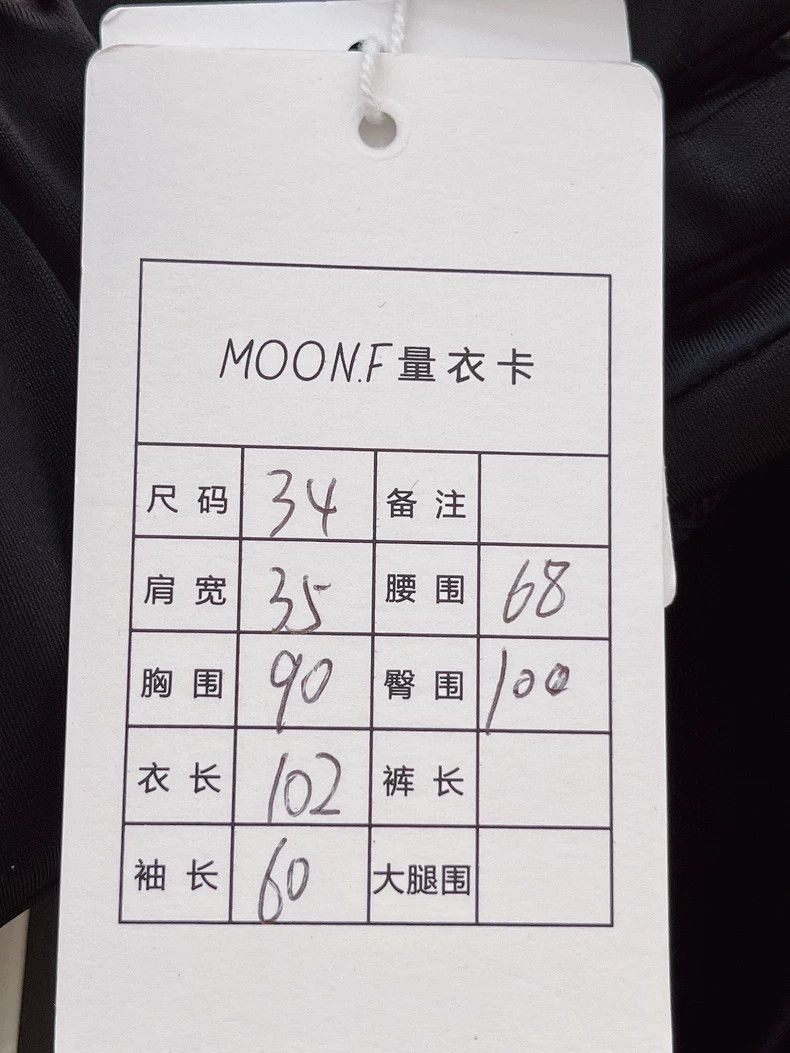 MOON.F量衣卡
尺码 34 备注
肩宽 35 腰围 68
胸围 90 臀围 100
衣长 102 裤长
袖长 60 大腿围